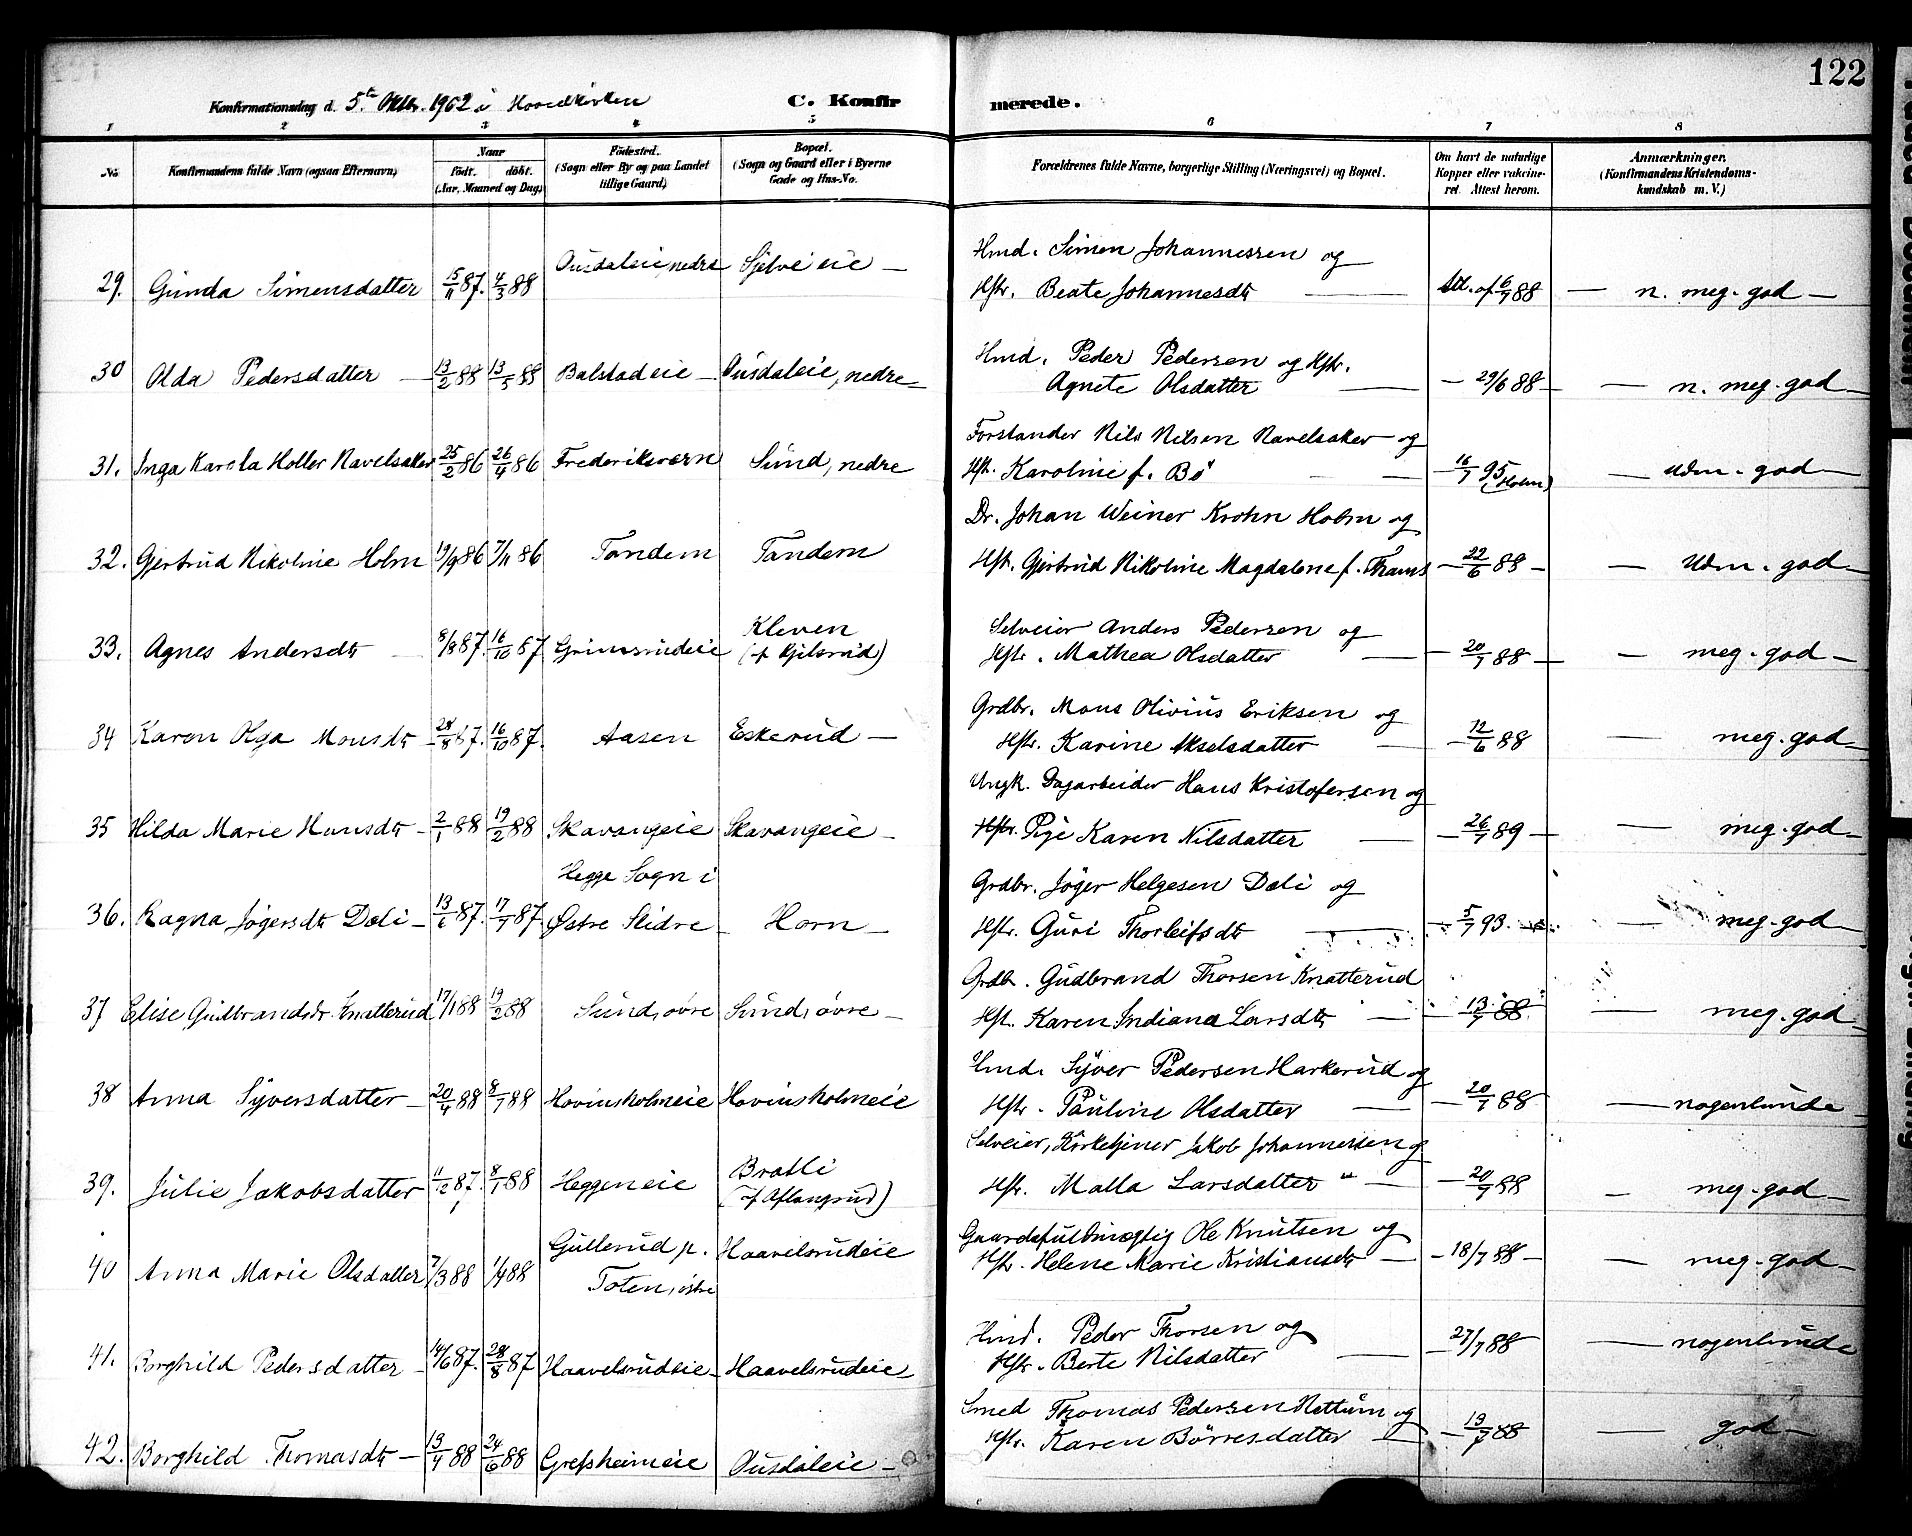 122
Konfirmationsdag d. 5te Oktbr. 1902 i Hovedkirken C. Konfirmerede.
1 2 3 4 5 6 7 8
No Konfirmandens fulde Navn (ogsaa Efternavn). Naar født. døbt. (Aar, Maaned og Dag). Fødested. (Sogn eller By og paa Landet tillige Gaard). Bopæl. (Sogn og Gaard eller i Byerne Gade og Hus-No. Forældrenes fulde Navne, borgerlige Stilling (Næringsvei) og Bopæl. Om havt de naturlige Kopper eller vakcineret. Attest herom. Anmærkninger. (Konfirmandens Kristendomskundskab m. V.)
Hmd. Simen Johannessen og
29. Gunda Simensdatter 15/11 87. 4/3 88 Ousdaleie nedre Sjelve eie — Hstr. Beate Johannesdtr — Att. af 6/7 88 — n. meg. god —
Hmd. Peder Pedersen og Hstr.
30 Olda Pedersdatter — 13/2 88 13/5 88 Balstadeie — Ousdaleie, nedre — Agnete Olsdatter — — 29/6 88 — — n. meg. god —
Forstander Nils Nilsen Ravelsaker og
31. Inga Karola Holler Ravelsaker 25/2 86 26/4 86 Frederiksværn Sund, nedre Hst. Karoline f. Bö — — 16/7 95 (Holm) — udm. god —
Dr. Johan Weiner Krohn Holm og
32. Gjertrud Nikoline Holm 19/9 86 7/11 86 Tandem Tandem Hst. Gjertrud Nikoline Magdalene f. Thams — 22/6 88 — — Udm. god —
Selveier Anders Pedersen og
33. Agnes Andersdtr 8/8 87. 16/10 87 Grimsrudeie Kleven (af Kjilsrud) Hstr. Mathea Olsdatter — — 20/7 88 — — meg. god —
Grdbr. Mons Olivius Eriksen og
34 Karen Olga Monsdtr 28/8 87. 16/10 87. Aasen Eskerud — Hstr. Karine Akselsdatter — — 12/6 88 — meg. god —
Ungk. Dagarbeider Hans Kristofersen og
35 Hilda Marie Hansdtr — 2/1 88 19/2 88 Skavangeie Skavangeie — Hstr. Pige Karen Nilsdatter — — 26/7 89 — — meg. god —
Grdbr. Jøger Helgesen Dæli og
36. Ragna Jøgersdtr Dæli — 13/6 87. 17/7 87. Hegge Sogn i Østre Slidre — Horn — Hstr. Guri Thorleifsdtr — — 5/7 93. — meg. god —
Grdb. Gudbrand Thorsen Knatterud
37 Elise Gudbrandsdr. Knatterud 17/1 88 19/2 88 Sund, øvre Sund, øvre — Hst. Karen Indiana Larsdtr — — 13/7 88 — meg. god —
Hmd. Syver Pedersen Harkerud og
38 Anna Syversdatter — 20/4 88 8/7 88 Hovinsholmeie Hovinsholmeie Hstr. Pauline Olsdatter — — 20/7 88 — nogenlunde —
Selveier, Kirketjener Jakob Johannessen og
39. Julie Jakobsdatter 11/12 87. 8/1 88 Heggeneie Bratli (af Aflangrud) Hstr. Malla Larsdatter — — 20/7 88 — meg. god —
Gaardsfuldmægtig Ole Knutsen og
40 Anna Marie Olsdatter 7/3 88 1/4 88 Gullerud p. Toten, østre Haavelsrudeie Hstr. Helene Marie Kristiansdtr — — 18/7 88 — — meg. god —
Hmd. Peder Thorsen og
41. Borghild Pedersdatter — 14/6 87. 28/8 87 Haavelsrudeie — Haavelsrudeie Hstr. Berte Nilsdatter — — 27/7 88 — nogenlunde
Smed Thomas Pedersen Nettum og
42. Borghild Thomasdtr — 13/4 88 24/6 88 Grefsheimeie Ousdaleie — Hstr. Karen Börresdatter — — 13/7 88 — god —